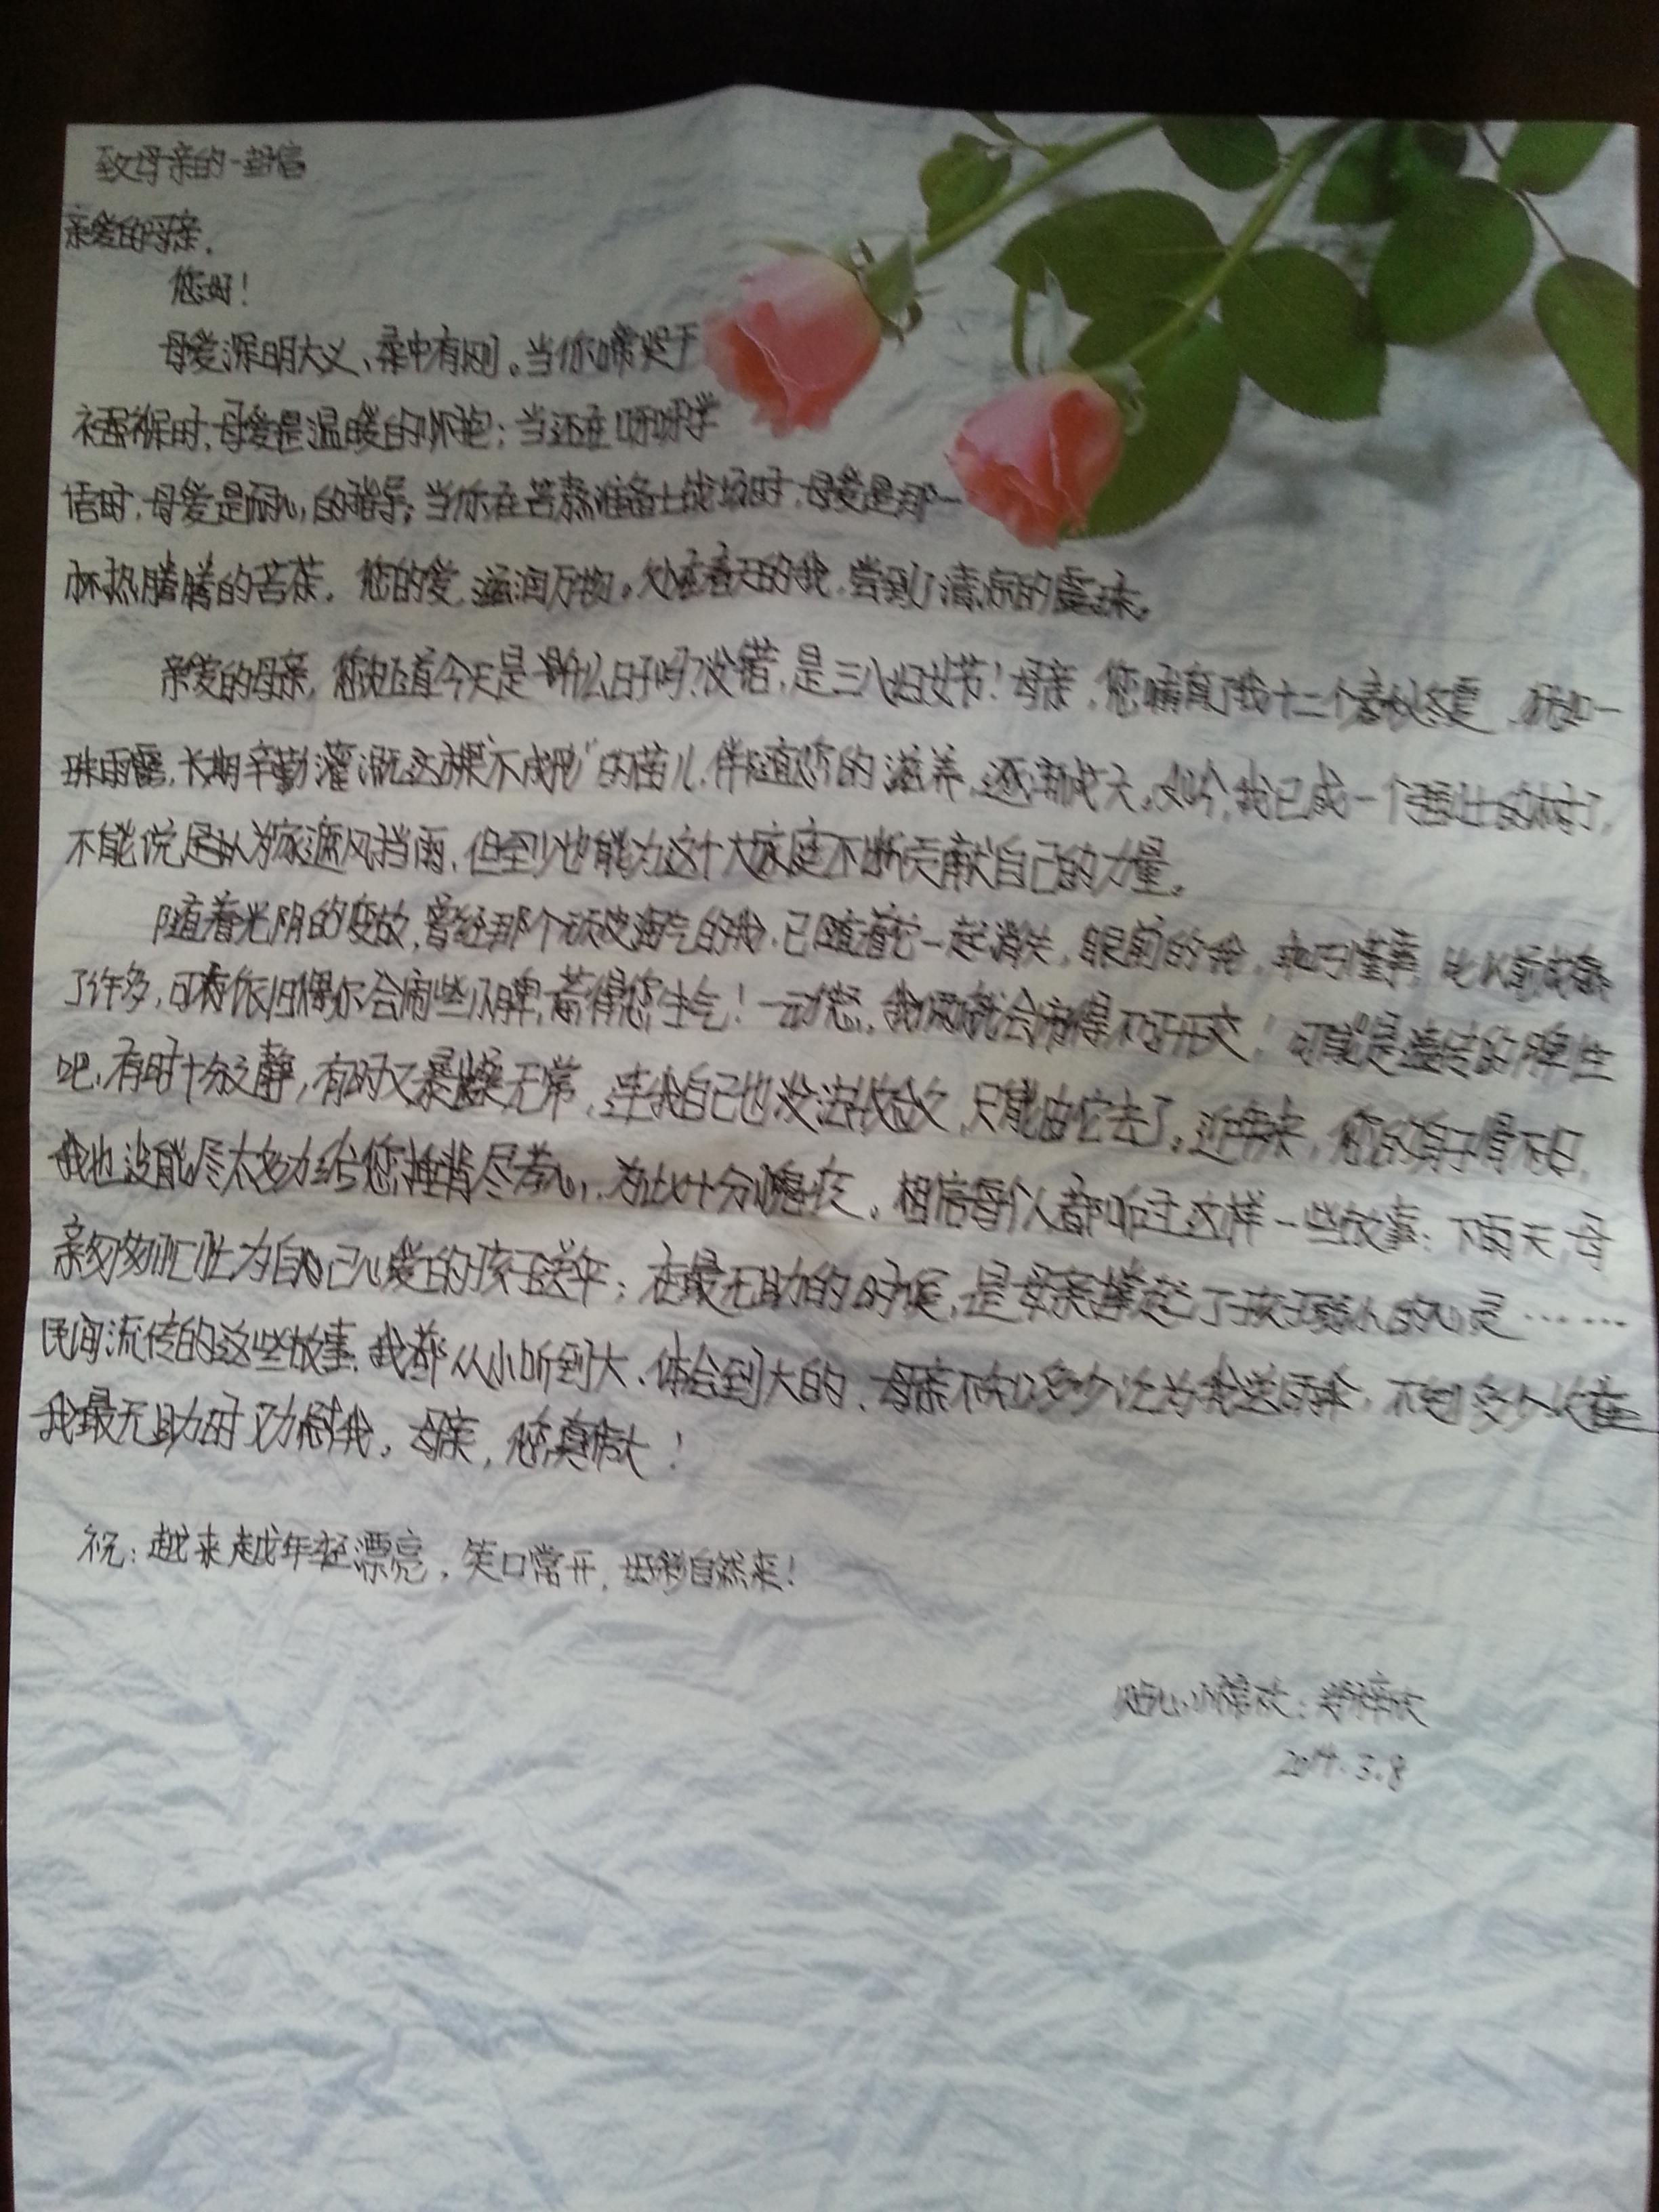 致母亲的一封信
亲爱的母亲,
您好!
母爱深明大义、柔中有刚。当你啼哭于
襁褓时,母爱是温暖的怀抱;当还在呀呀学
语时,母爱是耐心的指导;当你在苦熬准备上战场时,母爱是那一
杯热腾腾的苦茶。您的爱,滋润万物。处在春天的我,尝到了清凉的露珠。
亲爱的母亲,您知道今天是什么日子吗?没错,是三八妇女节!母亲,您哺育了我十二个春秋冬夏,犹如一
珠雨露,长期辛勤灌溉这棵"不成形"的苗儿,伴随您的滋养,逐渐成长。如今,我已成一个茁壮的树了,
不能说足以为家遮风挡雨,但至少也能为这个大家庭不断贡献自己的力量。
随着光阴的变故,曾经那个顽皮淘气的我,已随着它一起消失,眼前的我,更于懂事,比以前成熟
了许多,可我依旧偶尔会闹些小脾,惹得您生气!一动怒,我俩就会闹得不可开交!可能是遗传的脾性
吧,有时十分文静,有时又暴躁无常,连我自己也没法收敛,只能由它去了。近年来,您的身子骨不好,
我也没能尽太多力给您捶背尽孝心,为此十分愧疚。相信每个人都听过这样一些故事:下雨天,母
亲匆匆忙忙为自己心爱的孩子送伞;在最无助的时候,是母亲撑起了孩子弱小的心灵……
民间流传的这些故事,我都从小听到大、体会到大的,母亲不知多少次为我送雨伞,不知多少次在
我最无助时又力撑我。母亲,您真伟大!
祝:越来越年轻漂亮,笑口常开,好彩自然来!
贴心小棉袄:
2014.3.8